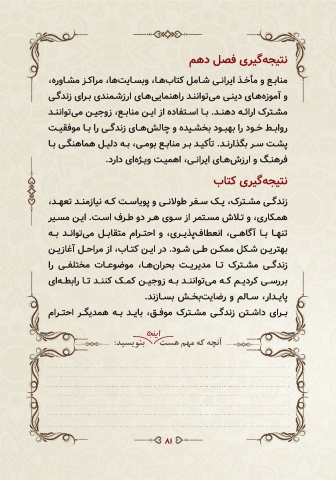 نتیجه‌گیری فصل دهم
منابع و مآخذ ایرانی شامل کتاب‌ها، وبسایت‌ها، مراکز مشاوره،
و آموزه‌های دینی می‌توانند راهنمایی‌های ارزشمندی برای زندگی
مشترک ارائه دهند. با استفاده از این منابع، زوجین می‌توانند
روابط خود را بهبود بخشیده و چالش‌های زندگی را با موفقیت
پشت سر بگذارند. تأکید بر منابع بومی، به دلیل هماهنگی با
فرهنگ و ارزش‌های ایرانی، اهمیت ویژه‌ای دارد.
نتیجه‌گیری کتاب
زندگی مشترک، یک سفر طولانی و پویاست که نیازمند تعهد،
همکاری، و تلاش مستمر از سوی هر دو طرف است. این مسیر
تنها با آگاهی، انعطاف‌پذیری، و احترام متقابل می‌تواند به
بهترین شکل ممکن طی شود. در این کتاب، از مراحل آغازین
زندگی مشترک تا مدیریت بحران‌ها، موضوعات مختلفی را
بررسی کردیم که می‌توانند به زوجین کمک کنند تا رابطه‌ای
پایدار، سالم و رضایت‌بخش بسازند.
برای داشتن زندگی مشترک موفق، باید به همدیگر احترام
آنچه که مهم هست اینجا بنویسید:
۸۱